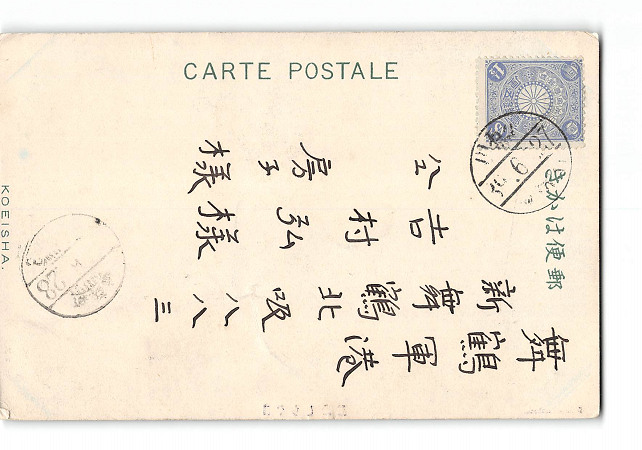 CARTE POSTALE
郵便はかき
舞鶴軍港
新舞鶴北吸八八三
吉村弘様
房子様
KOEISHA.
28